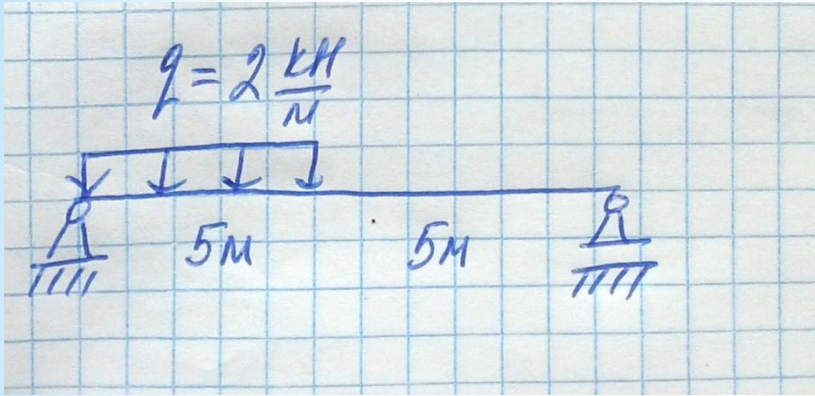 q = 2 кН/м
5м 5м